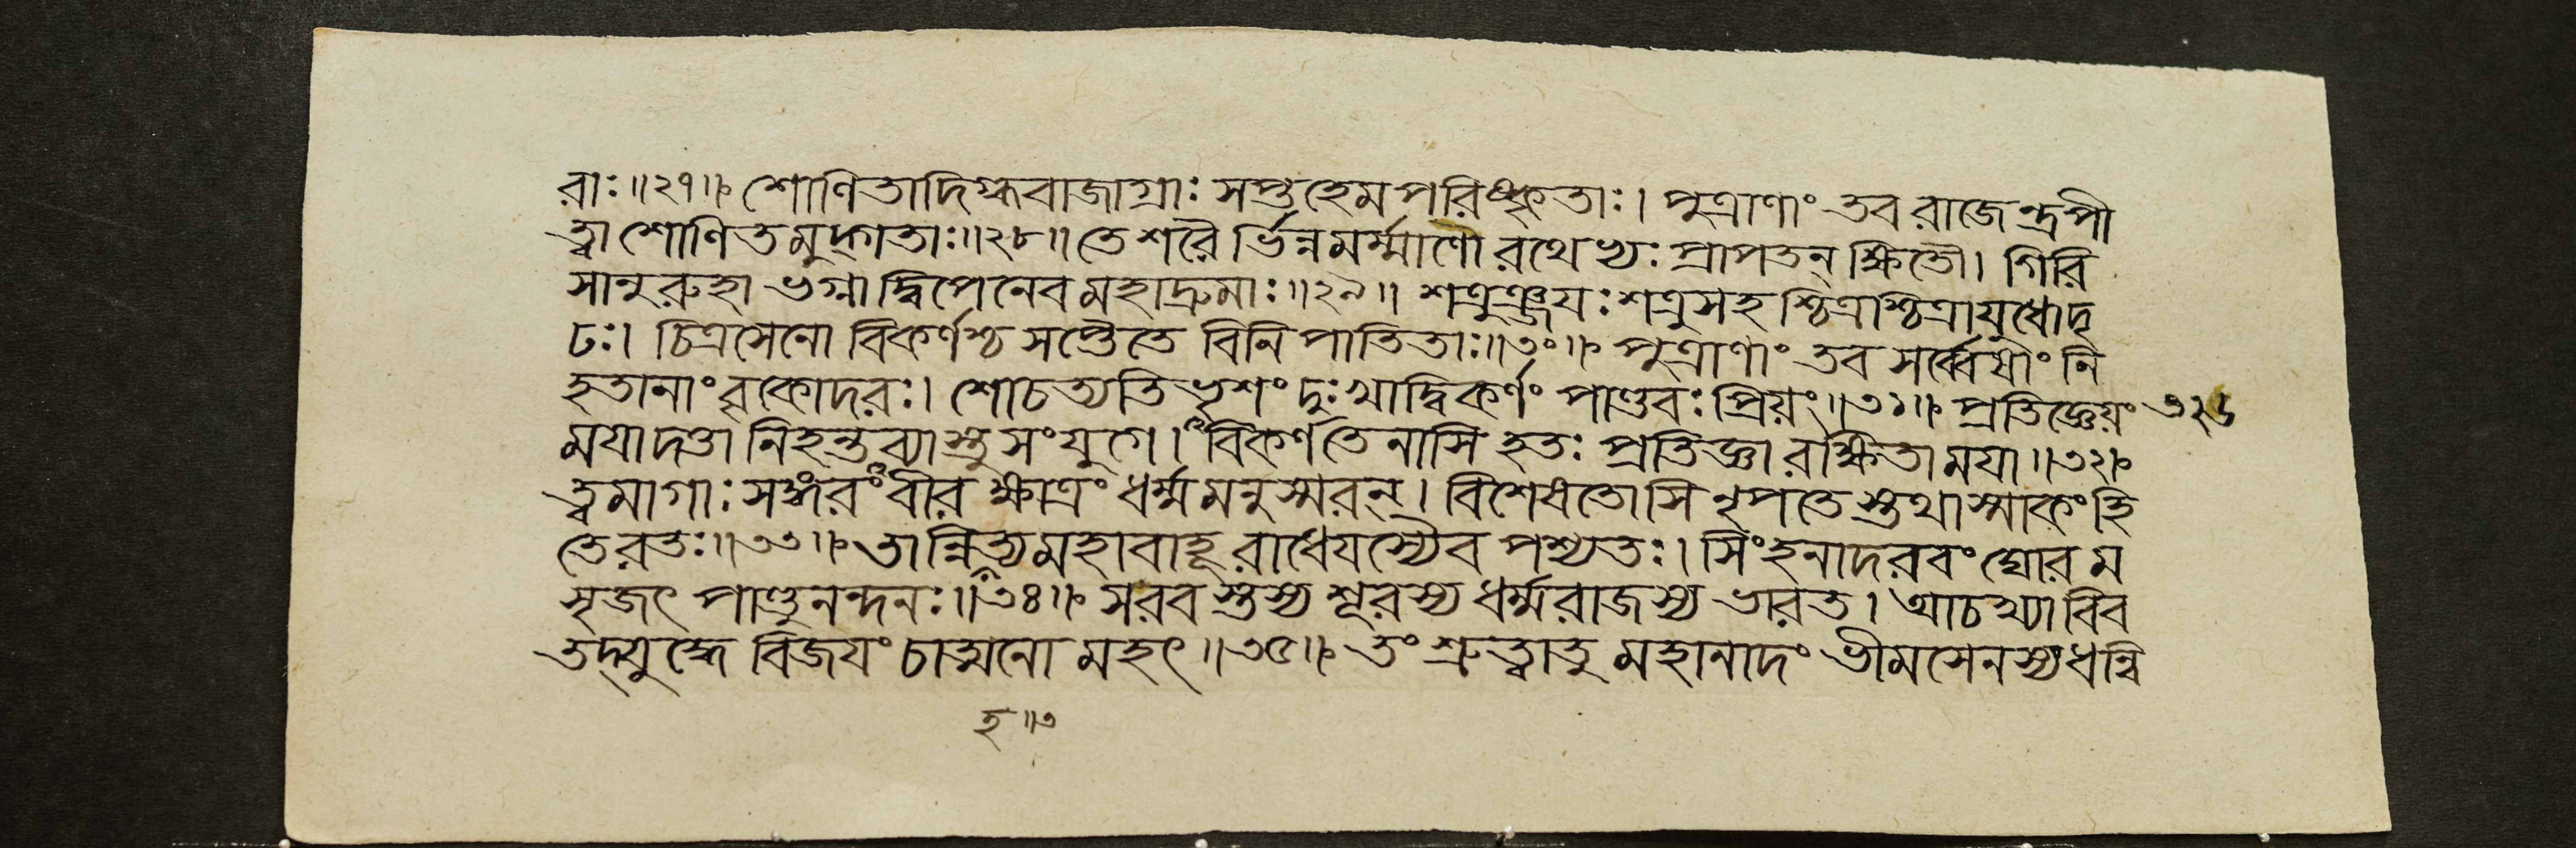 রাঃ॥২৭॥ শোণিতাদিগ্ধবাজাগ্রাঃ সপ্তহেমপরিষ্কৃতাঃ। পুত্রাণাং তব রাজেন্দ্র পী
ত্বা শোণিতমুদ্গতাঃ॥২৮॥ তে শরৈর্ভিন্নমর্ম্মাণো রথেভ্যঃ প্রাপতন্ ক্ষিতৌ। গিরি
সানুরুহা ভগ্না দ্বিপেনেব মহাদ্রুমাঃ॥২৯॥ শত্রুঞ্জয়ঃ শত্রুসহশ্চিত্রশ্চিত্রায়ুধো দৃ
ঢঃ। চিত্রসেনো বিকর্ণশ্চ সপ্তৈতে বিনিপাতিতাঃ॥৩০॥ পুত্রাণাং তব সর্ব্বেষাং নি
হতানাং বৃকোদরঃ। শোচত্যতিভৃশং দুঃখাদ্বিকর্ণং পাণ্ডবঃ প্রিয়ং॥৩১॥ প্রতিজ্ঞেয়ং ৩২৬
ময়া দত্তা নিহন্তব্যাস্তু সংযুগে। বিকর্ণ তেনাসি হতঃ প্রতিজ্ঞা রক্ষিতা ময়া॥৩২॥
ত্বমাগাঃ সমরং বীর ক্ষাত্রং ধর্ম্মমনুস্মরন্। বিশেষতোসি নৃপতেস্তথাস্মাকং হি
তে রতঃ॥৩৩॥ তান্নিহত্য মহাবাহূ রাধেয়স্যৈব পশ্যতঃ। সিংহনাদরবং ঘোরম
সৃজৎ পাণ্ডুনন্দনঃ॥৩৪॥ স রবস্তস্য শূরস্য ধর্ম্মরাজস্য ভারত। আচখ্যাবিব
তদ্যুদ্ধে বিজয়ং চাত্মনো মহৎ॥৩৫॥ তং শ্রুত্বা তু মহানাদং ভীমসেনস্য ধন্বি
হ॥৩